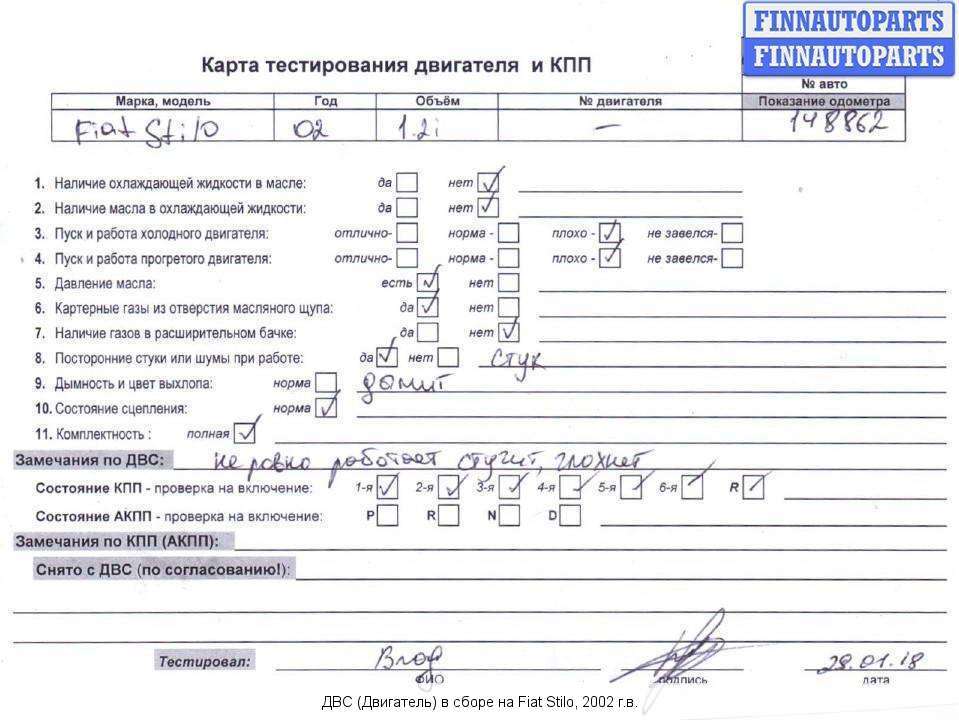 FINNAUTOPARTS
FINNAUTOPARTS
Карта тестирования двигателя и КПП
№ авто
Марка, модель Год Объём № двигателя Показание одометра
Fiat Stilo 02 1.2i — 148862
1. Наличие охлаждающей жидкости в масле: да нет
2. Наличие масла в охлаждающей жидкости: да нет
3. Пуск и работа холодного двигателя: отлично- норма - плохо - не завелся-
4. Пуск и работа прогретого двигателя: отлично- норма - плохо - не завелся-
5. Давление масла: есть нет
6. Картерные газы из отверстия масляного щупа: да нет
7. Наличие газов в расширительном бачке: да нет
8. Посторонние стуки или шумы при работе: да нет стук
9. Дымность и цвет выхлопа: норма дымит
10. Состояние сцепления: норма
11. Комплектность : полная
Замечания по ДВС: не ровно работает стучит, глохнет
Состояние КПП - проверка на включение: 1-я 2-я 3-я 4-я 5-я 6-я R
Состояние АКПП - проверка на включение: P R N D
Замечания по КПП (АКПП):
Снято с ДВС (по согласованию!):
Тестировал: Влад 29.01.18
ФИО подпись дата
ДВС (Двигатель) в сборе на Fiat Stilo, 2002 г.в.